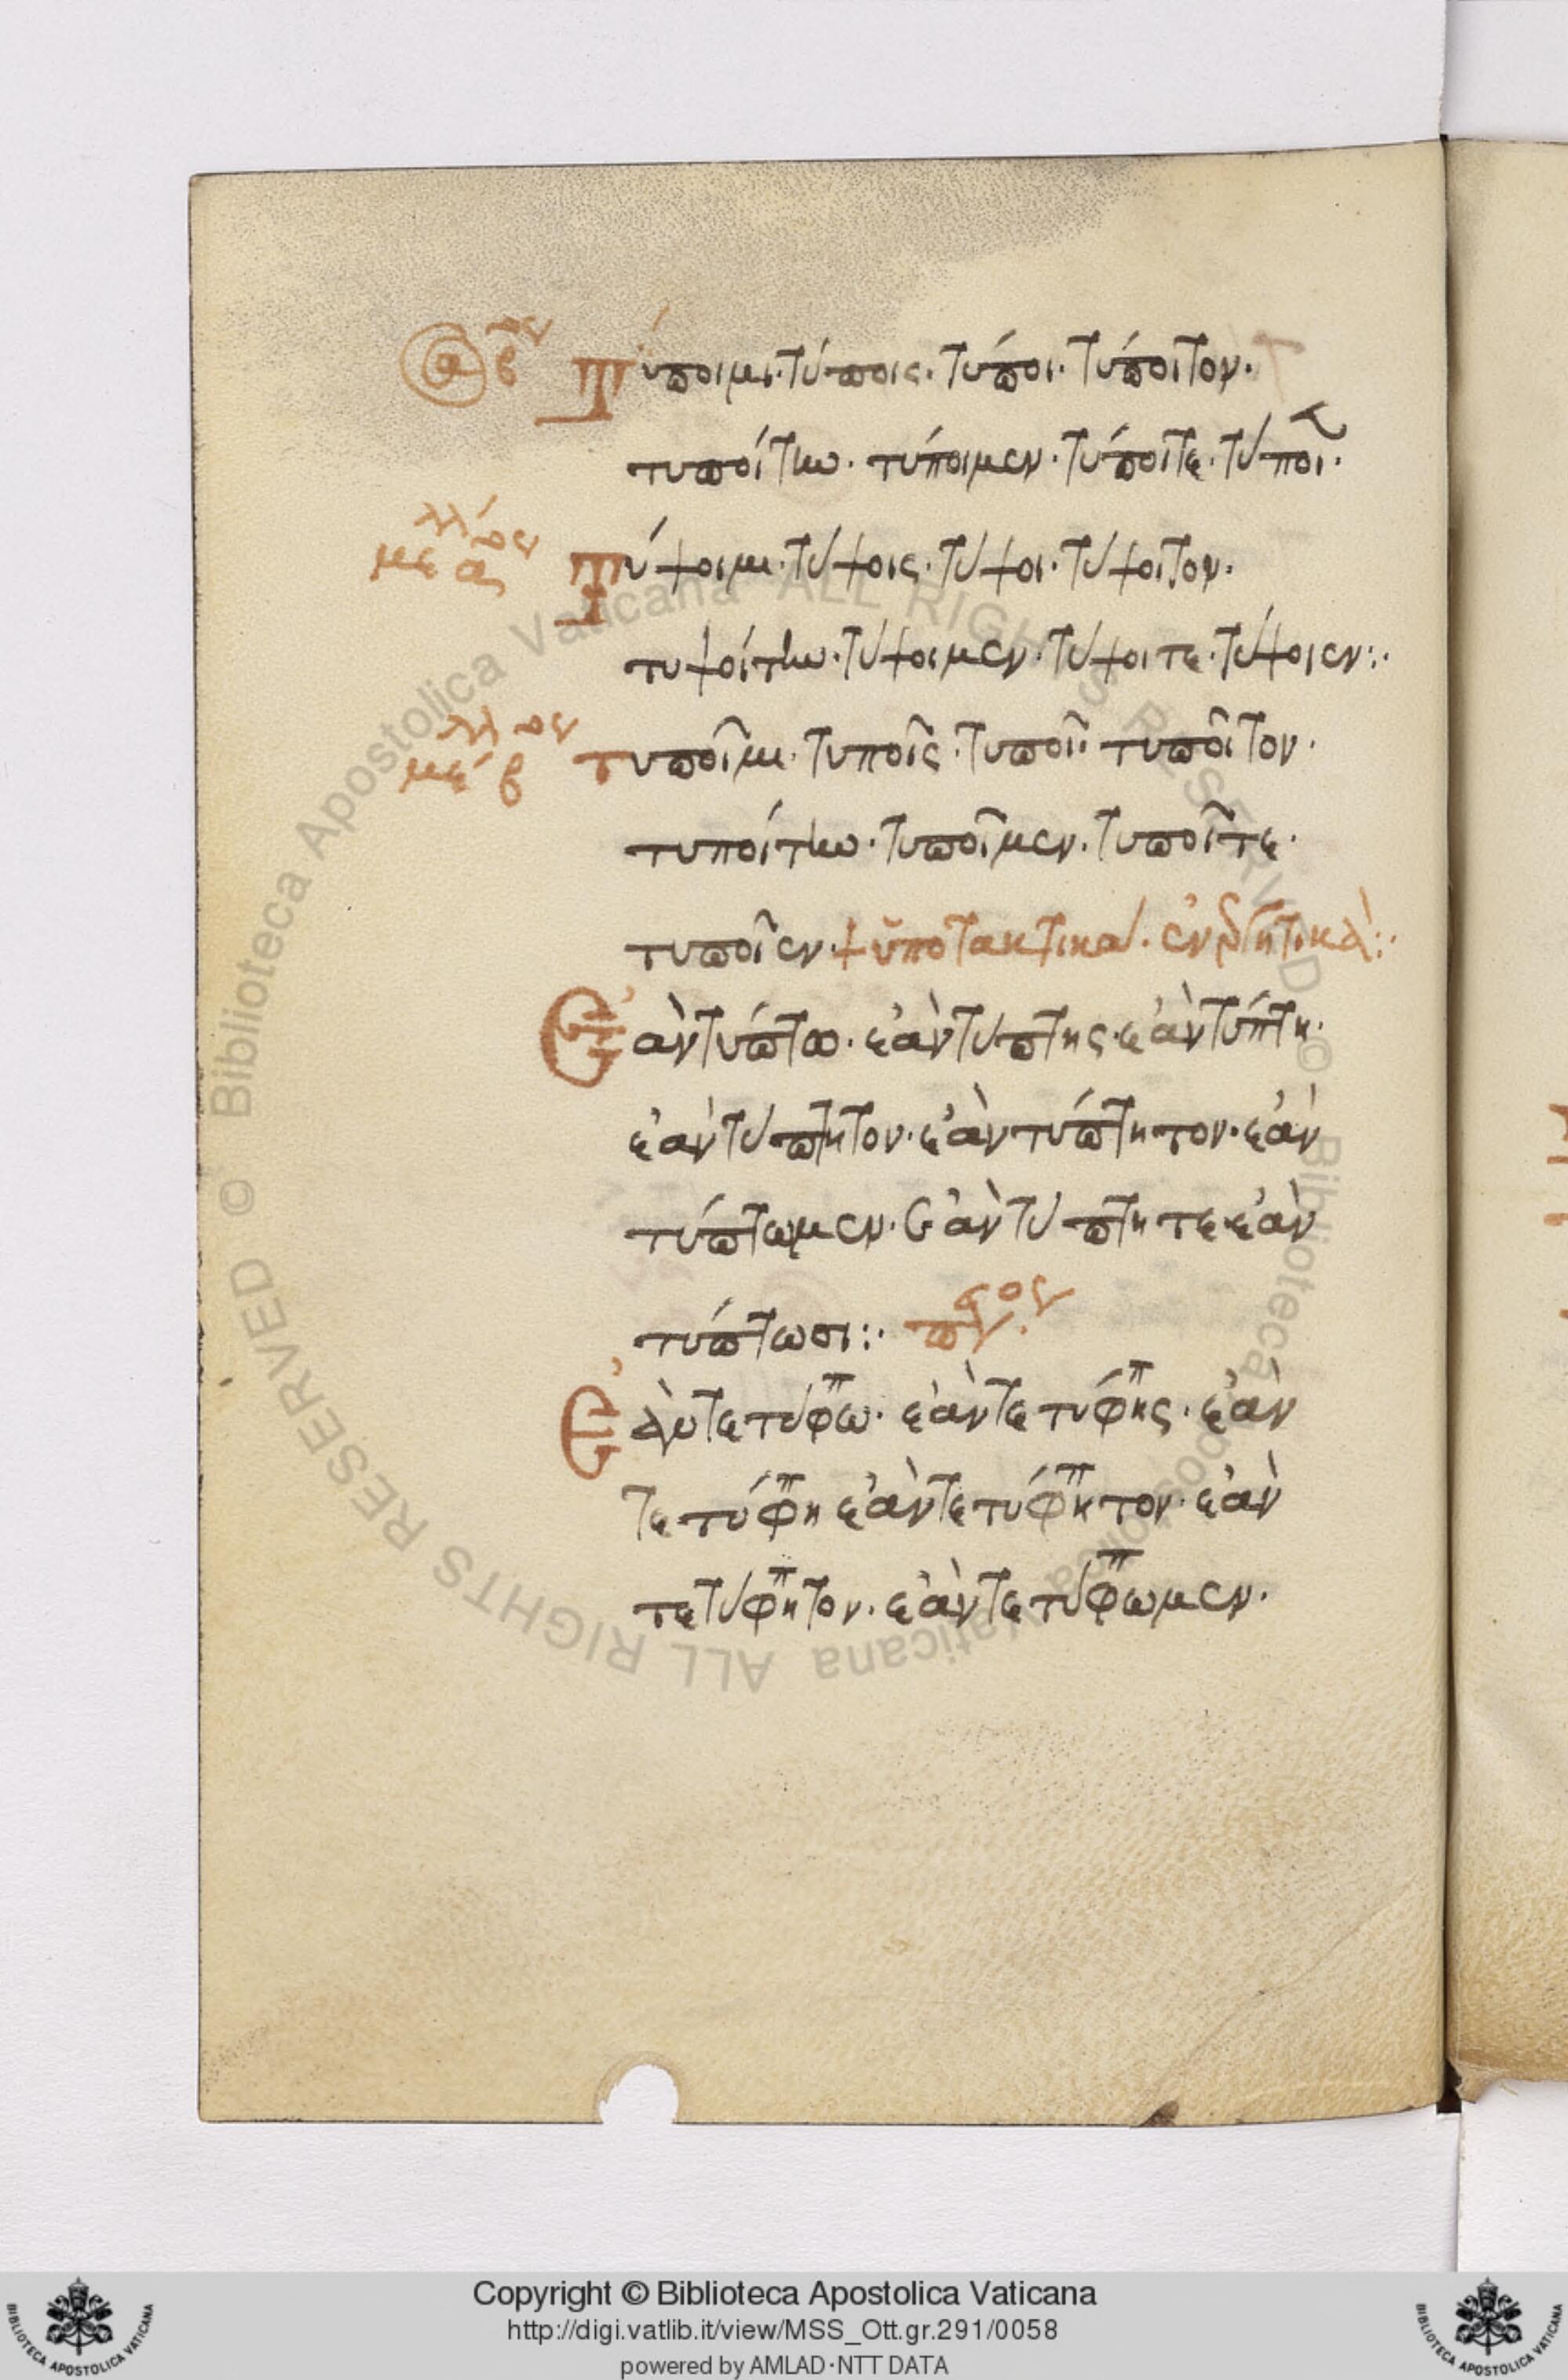 ἀόρ β Τύποιμι· τύποις· τύποι· τύποιτον·
τυποίτην· τύποιμεν· τύποιτε· τύποι·
μέλλον α Τύψοιμι· τύψοις· τύψοι· τύψοιτον·
τυψοίτην· τύψοιμεν· τύψοιτε· τύψοιεν:·
μέλλον β τυποῖμι· τυποῖς· τυποῖ· τυποῖτον·
τυποίτην· τυποῖμεν· τυποῖτε·
τυποῖεν· + ὑποτακτικά· ἐνεργητικά:·
Ἐὰν τύπτω· ἐὰν τύπτης· ἐὰν τύπτη·
ἐὰν τύπτητον· ἐὰν τύπτητον· ἐὰν
τύπτωμεν· ἐὰν τύπτητε· ἐὰν
τύπτωσι:·
Ἐὰν τετύφω· ἐὰν τετύφης· ἐὰν
τετύφη ἐὰν τετύφητον· ἐὰν
τετύφητον· ἐὰν τετύφωμεν·
© Biblioteca Apostolica Vaticana ALL RIGHTS RESERVED © Biblioteca Apostolica Vaticana ALL RIGHTS RESERVED
Copyright © Biblioteca Apostolica Vaticana
http://digi.vatlib.it/view/MSS_Ott.gr.291/0058
powered by AMLAD·NTT DATA
BIBLIOTECA APOSTOLICA VATICANA
BIBLIOTECA APOSTOLICA VATICANA